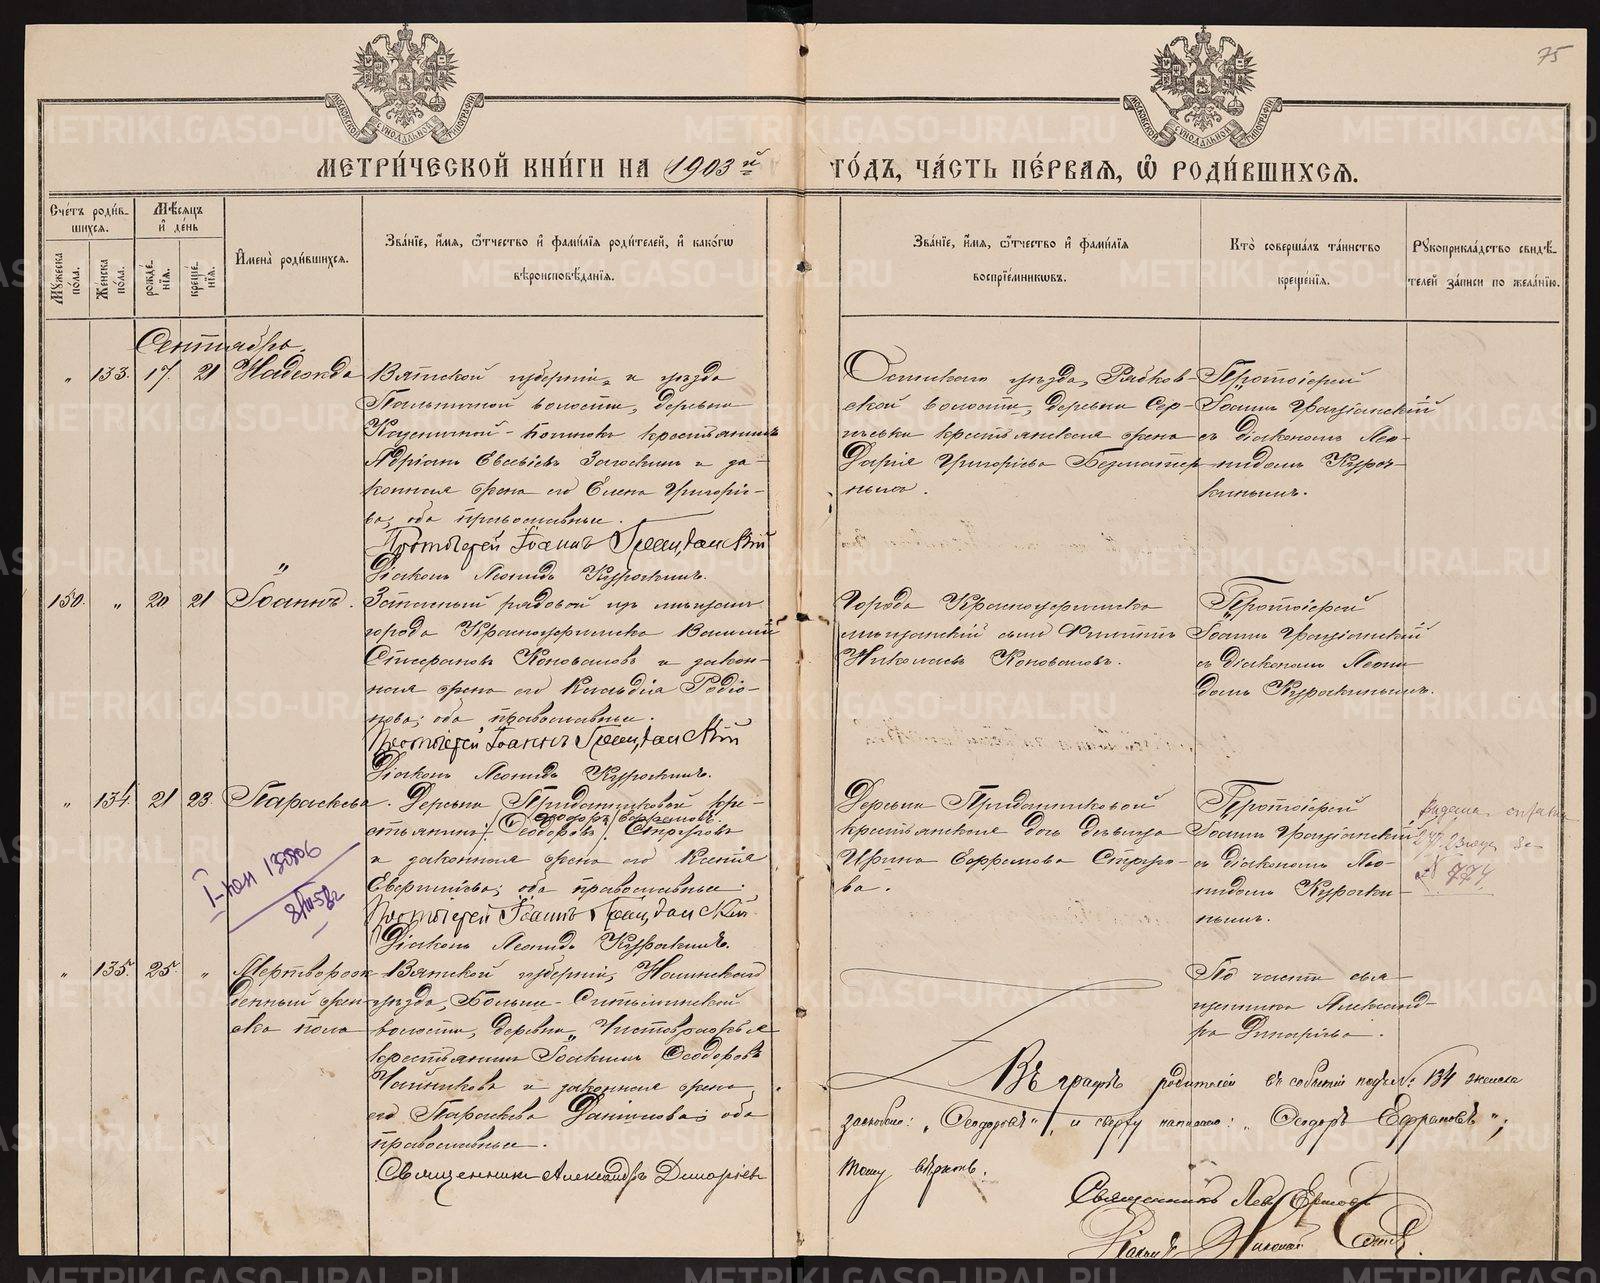 75
МОСКОВСКОЙ СѴНОДАЛЬНОЙ ТИПОГРАФІИ
МОСКОВСКОЙ СѴНОДАЛЬНОЙ ТИПОГРАФІИ
МЕТРИ́ЧЕСКОЙ КНИ́ГИ НА 1903й ГО́ДЪ, ЧА́СТЬ ПЕ́РВАЯ, Ѡ҆ РОДИ́ВШИХСЯ.
Сче́тъ роди́в-
шихся.
Му́жеска по́ла.
Же́нска по́ла.
Мѣ́сяцъ и҆ де́нь
рожде́нїя.
креще́нїя.
И҆мена̀ роди́вшихся.
Зва́нїе, и҆́мя, ѻ҆́тчество и҆ фами́лїя роди́телей, и҆ како́гѡ
вѣроисповѣ́данїя.
Зва́нїе, и҆́мя, ѻ҆́тчество и҆ фами́лїя
воспрїе́мникѡвъ.
Кто̀ соверша́лъ та́инство
креще́нїя.
Рꙋкоприкла́дство свидѣ́-
телей за́писи по жела́нїю.
Сентябрь.
„ 133. 17. 21 Надежда
Вятской губерніи и уѣзда
волости, деревни
крестьянинъ
Адріанъ Евсевіевъ и за-
конная жена его Елена Григоріе-
ва, оба православные.
Протоіерей Іоаннъ Граціанскій
Діаконъ Леонидъ Курочкинъ.
Осинскаго уѣзда, Рябков-
ской волости, деревни Сер-
крестьянская жена
Дарія Григоріева
Протоіерей
Іоаннъ Граціанскій
съ діакономъ Лео-
нидомъ Куроч-
кинымъ.
150. „ 20 21 Іоаннъ.
Запасный рядовой изъ мѣщанъ
города Красноуфимска Василій
Стефановъ Коноваловъ и закон-
ная жена его Клавдіа Родіо-
нова; оба православные.
Протоіерей Іоаннъ Граціанскій
Діаконъ Леонидъ Курочкинъ.
Города Красноуфимска
мѣщанскій сынъ Филиппъ
Николаевъ Коноваловъ.
Протоіерей
Іоаннъ Граціанскій
съ діакономъ Леони-
домъ Курочкинымъ.
„ 134 21 23. Параскева.
Деревни Приданниковой кре-
Ѳеодоръ Ефремовъ
стьянинъ /Ѳеодоровъ/ Стругановъ
и законная жена его Ксенія
оба православные.
Протоіерей Іоаннъ Граціанскій
Діаконъ Леонидъ Курочкинъ.
Деревни Приданниковой
крестьянская дочь дѣвица
Ирина Ефремова
ва.
Протоіерей
Іоаннъ Граціанскій
съ діакономъ Лео-
нидомъ Курочки-
нымъ.
за
№ 774
„ 135. 25. „ Мертворож-
денный жен-
ска пола
Вятской губерніи, Нолинскаго
уѣзда, Больше-Ситьминской
волости, деревни
крестьянинъ Іоакимъ Ѳеодоровъ
Чайниковъ и законная жена
его Параскева Даніилова; оба
православные.
Священникъ Александръ Динаріевъ
По части свя-
щенника Александ-
ра Динаріева.
Въ графѣ родителей въ событіи подъ № 134 женска
„Ѳеодоровъ“, и сверху написано: „Ѳеодоръ Ефремовъ“;
тому вѣримъ.
Священникъ Левъ Ершовъ
Николай
METRIKI.GASO-URAL.RU